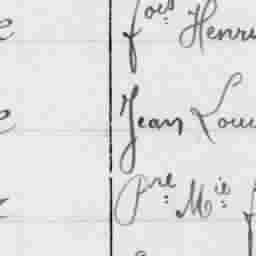 fois Henri
Jean Lou
Pre Mie